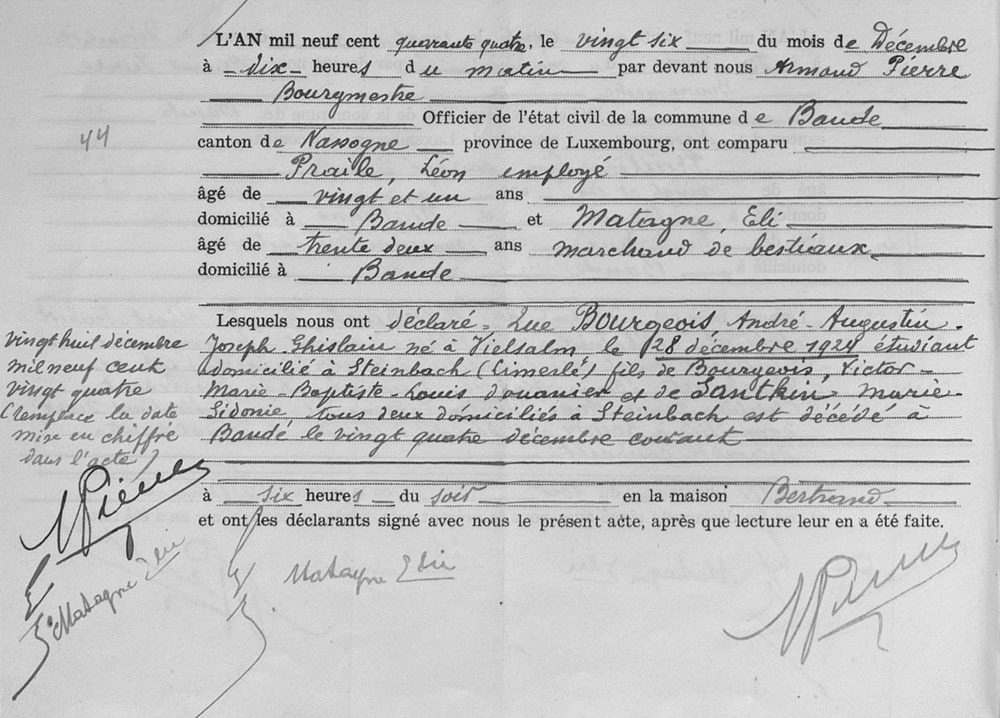 L'AN mil neuf cent quarante quatre, le vingt six du mois de Décembre
à dix heures du matin par devant nous Armand Pierre
Bourgmestre
Officier de l'état civil de la commune de Bande
44
canton de Nassogne province de Luxembourg, ont comparu
Praile, Léon employé
âgé de vingt et un ans
domicilié à Bande et Matagne, Eli
âgé de trente deux ans marchand de bestiaux
domicilié à Bande
Lesquels nous ont déclaré - Que Bourgeois, André-Augustin-
Joseph Ghislain né à Vielsalm, le 28 décembre 1924 étudiant
domicilié à Steinbach (Limerlé) fils de Bourgeois, Victor-
Marie-Baptiste-Louis douanier et de Santkin Marie-
Sidonie tous deux domiciliés à Steinbach est décédé à
Bande le vingt quatre décembre courant
à six heures du soir en la maison Bertrand
et ont les déclarants signé avec nous le présent acte, après que lecture leur en a été faite.
vingt huit décembre
mil neuf cent
vingt quatre
(remplace la date
mise en chiffre
dans l'acte)
APierre
Matagne Elie
Matagne Elie
APierre